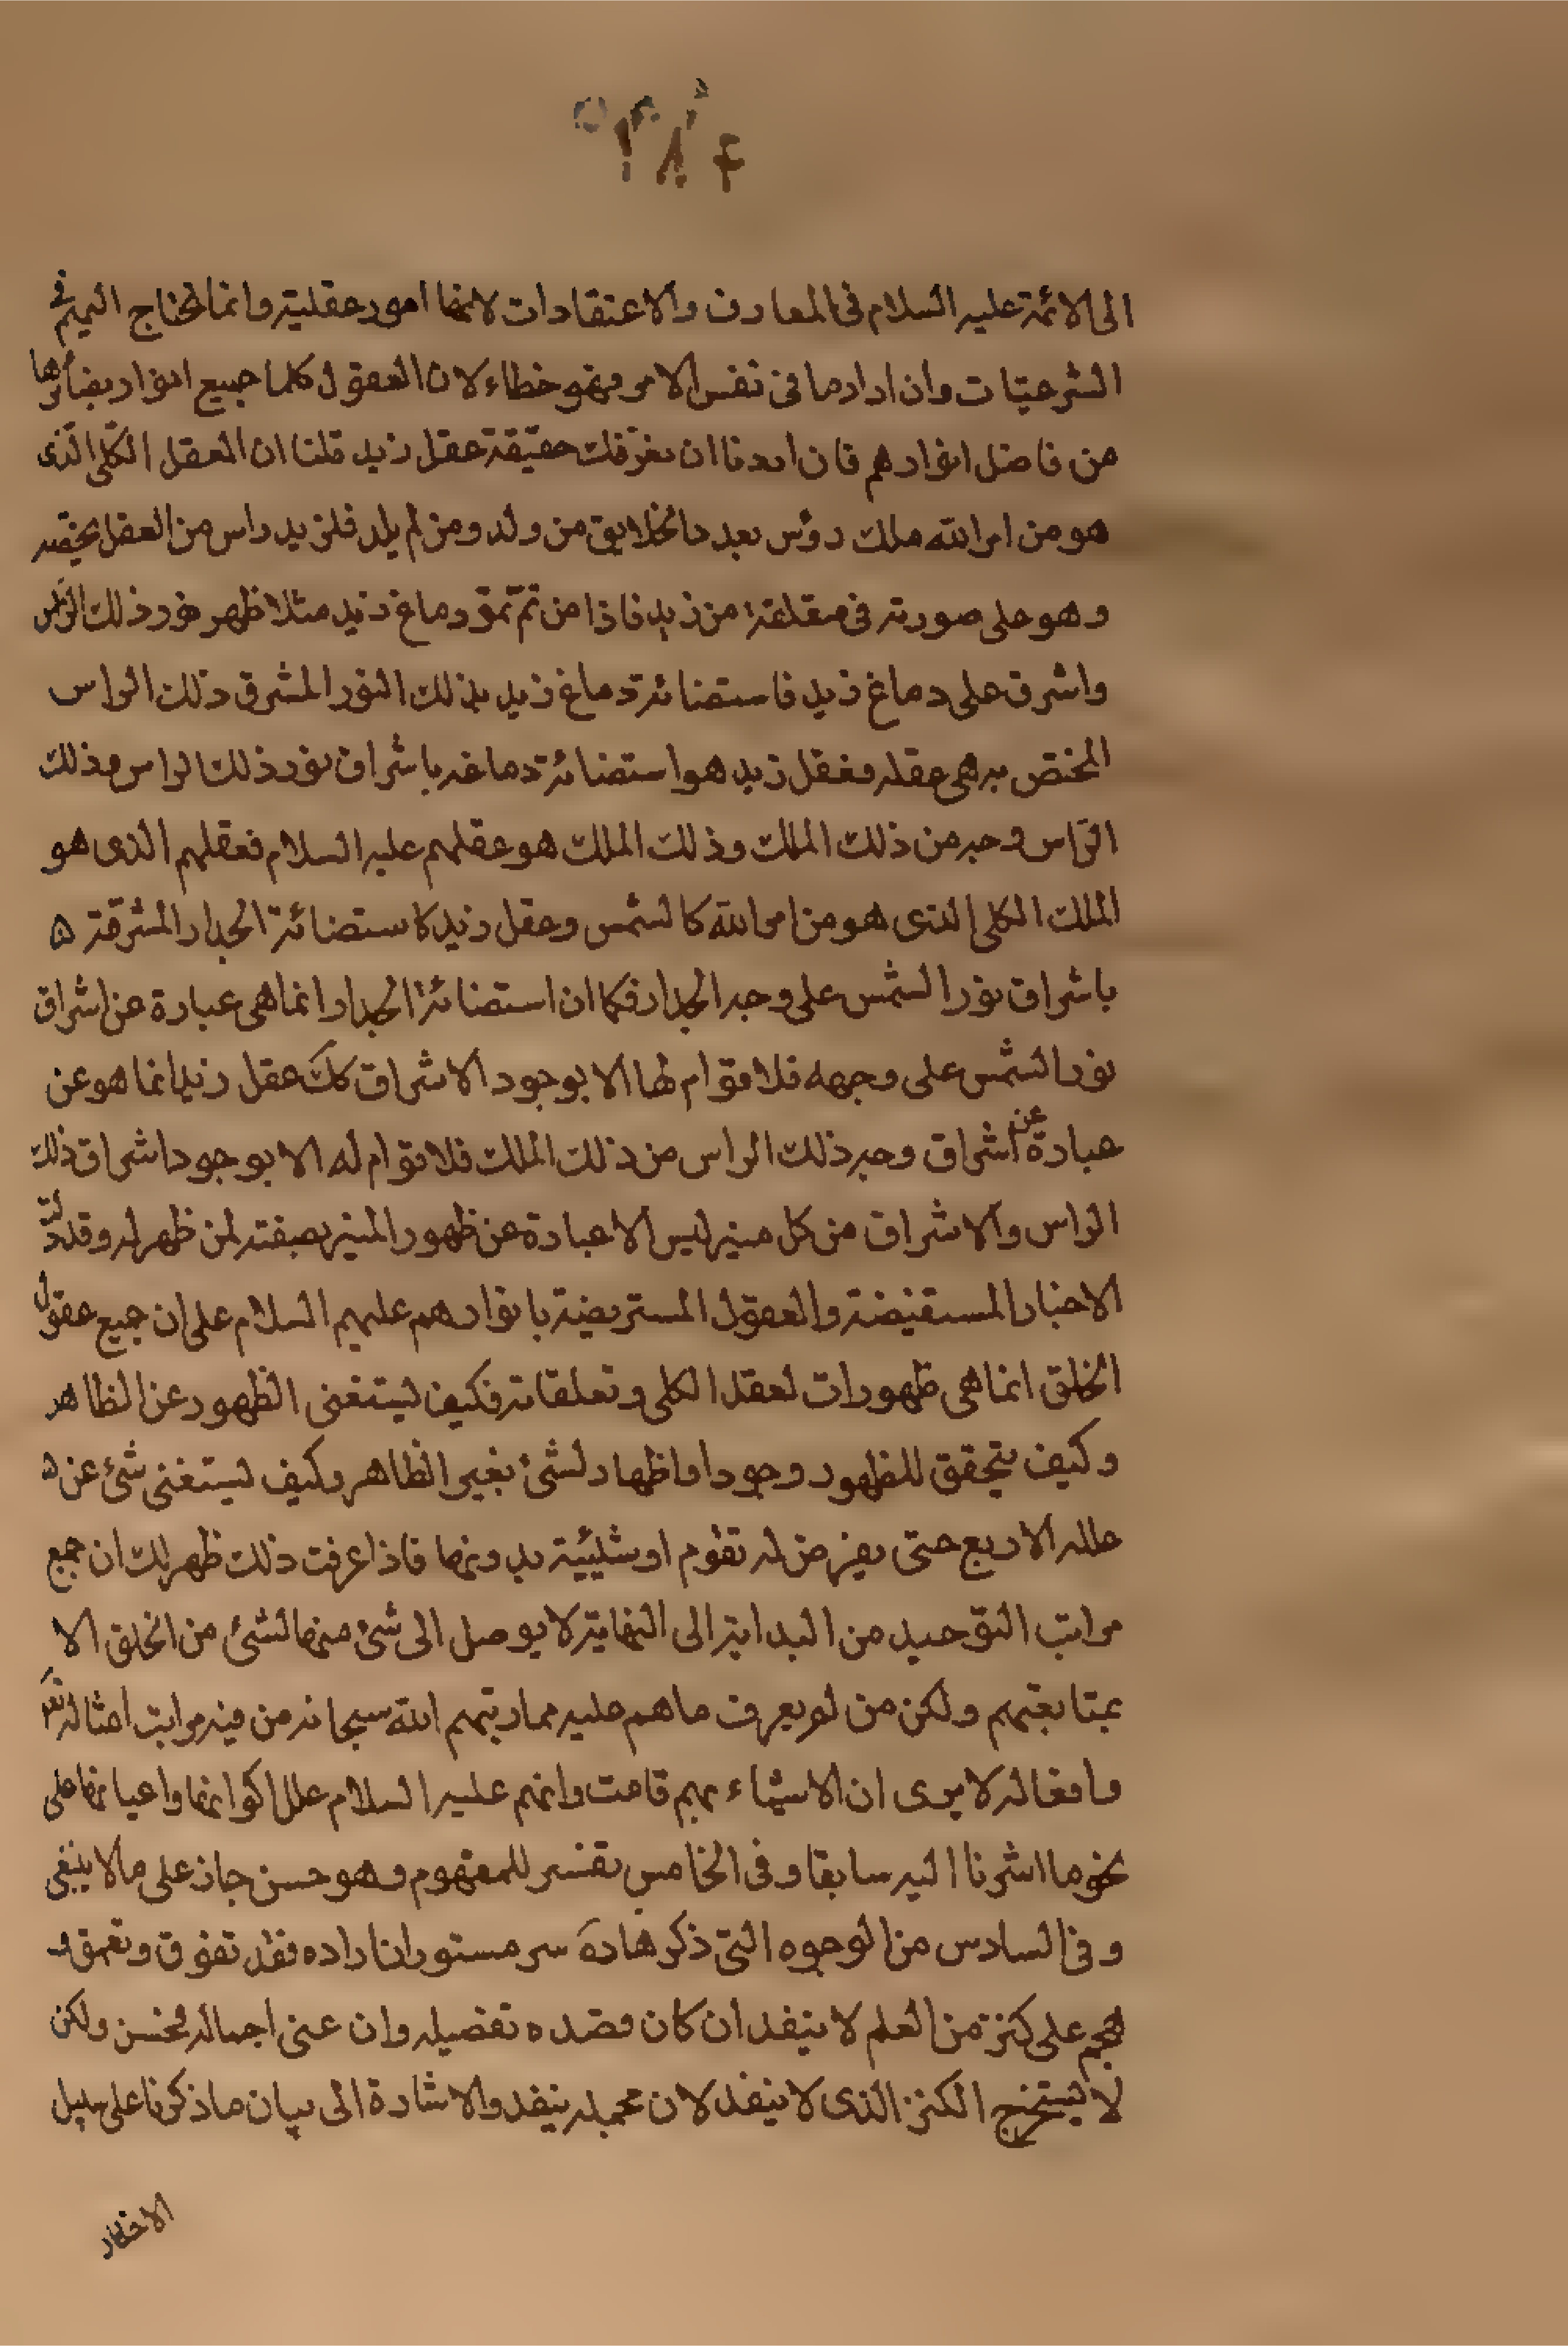 الى الائمة عليه السلام فى المعارف والاعتقادات لانها امور عقلية وانما يحتاج اليهم فى
الشرعيات وان اراد ما فى نفس الامر فهو خطاء لان العقول كلها جميع انوار بضائرها
من فاضل انوارهم فان اردنا ان نعرفك حقيقة عقل زيد قلنا ان العقل الكلى الذى
هو من امر الله ملك رؤس بعدد الخلايق من ولد ومن لم يلد فلزيد راس من العقل يخصه
وهو على صورته فى من زيد فاذا من تم نمو دماغ زيد مثلا ظهر نور ذلك الراس
واشرق على دماغ زيد فاستضائة دماغ زيد بذلك النور المشرق ذلك الراس
المختص به هى عقله فعقل زيد هو استضائة دماغه باشراق نور ذلك الراس وذلك
الراس وجه من ذلك الملك وذلك الملك هو عقلهم عليه السلام فعقلهم الذى هو
الملك الكلى الذى هو من امر الله كالشمس وعقل زيد كاستضائة الجدار المشرقة ه
باشراق نور الشمس على وجه الجدار فكما ان استضائة الجدار انما هى عبارة عن اشراق
نور الشمس على وجهه فلا قوام لها الا بوجود الاشراق كك عقل زيد انما هو عن
عبارة عن اشراق وجه ذلك الراس من ذلك الملك فلا قوام له الا بوجود اشراق ذلك
الراس والاشراق من كل منير ليس الا عبارة عن ظهور المنير بصفته لمن ظهر له وقد دلت
الاخبار المستفيضة والعقول المستريضة بانوارهم عليهم السلام على ان جميع عقول
الخلق انما هى ظهورات لعقل الكلى وتعلقاته فكيف يستغنى الظهور عن الظاهر
وكيف يتحقق للظهور وجود او اظهار لشئ بغير الظاهر وكيف يستغنى شئ عن ه
علله الاربع حتى يفرض له تقوم او شيئية بدونها فاذا عرفت ذلك ظهر لك ان جميع
مراتب التوحيد من البداية الى النهاية لا يوصل الى شئ منها لشئ من الخلق الا
بمتابعتهم ولكن من لو يعرف ما هم عليه مما رتبهم الله سبحانه من فيه مراتب امثاله تعالى
وافعاله لا يرى ان الاشياء بهم قامت وانهم عليه السلام علل اكوانها واعيانها على
نحو ما اشرنا اليه سابقا وفى الخامس تفسر للمفهوم وهو حسن جاز على ما لا ينبغى
وفى السادس من الوجوه التى ذكرها ده سر مستور ان اراده فقد تفوق وتعمق و
هجم على كنز من العلم لا ينفد ان كان قصده تفصيله وان عنى اجماله فحسن ولكن
لا يستخرج الكنز الذى لا ينفد لان مجمله ينفد والاشارة الى بيان ما ذكرنا على سبيل
الاختصار